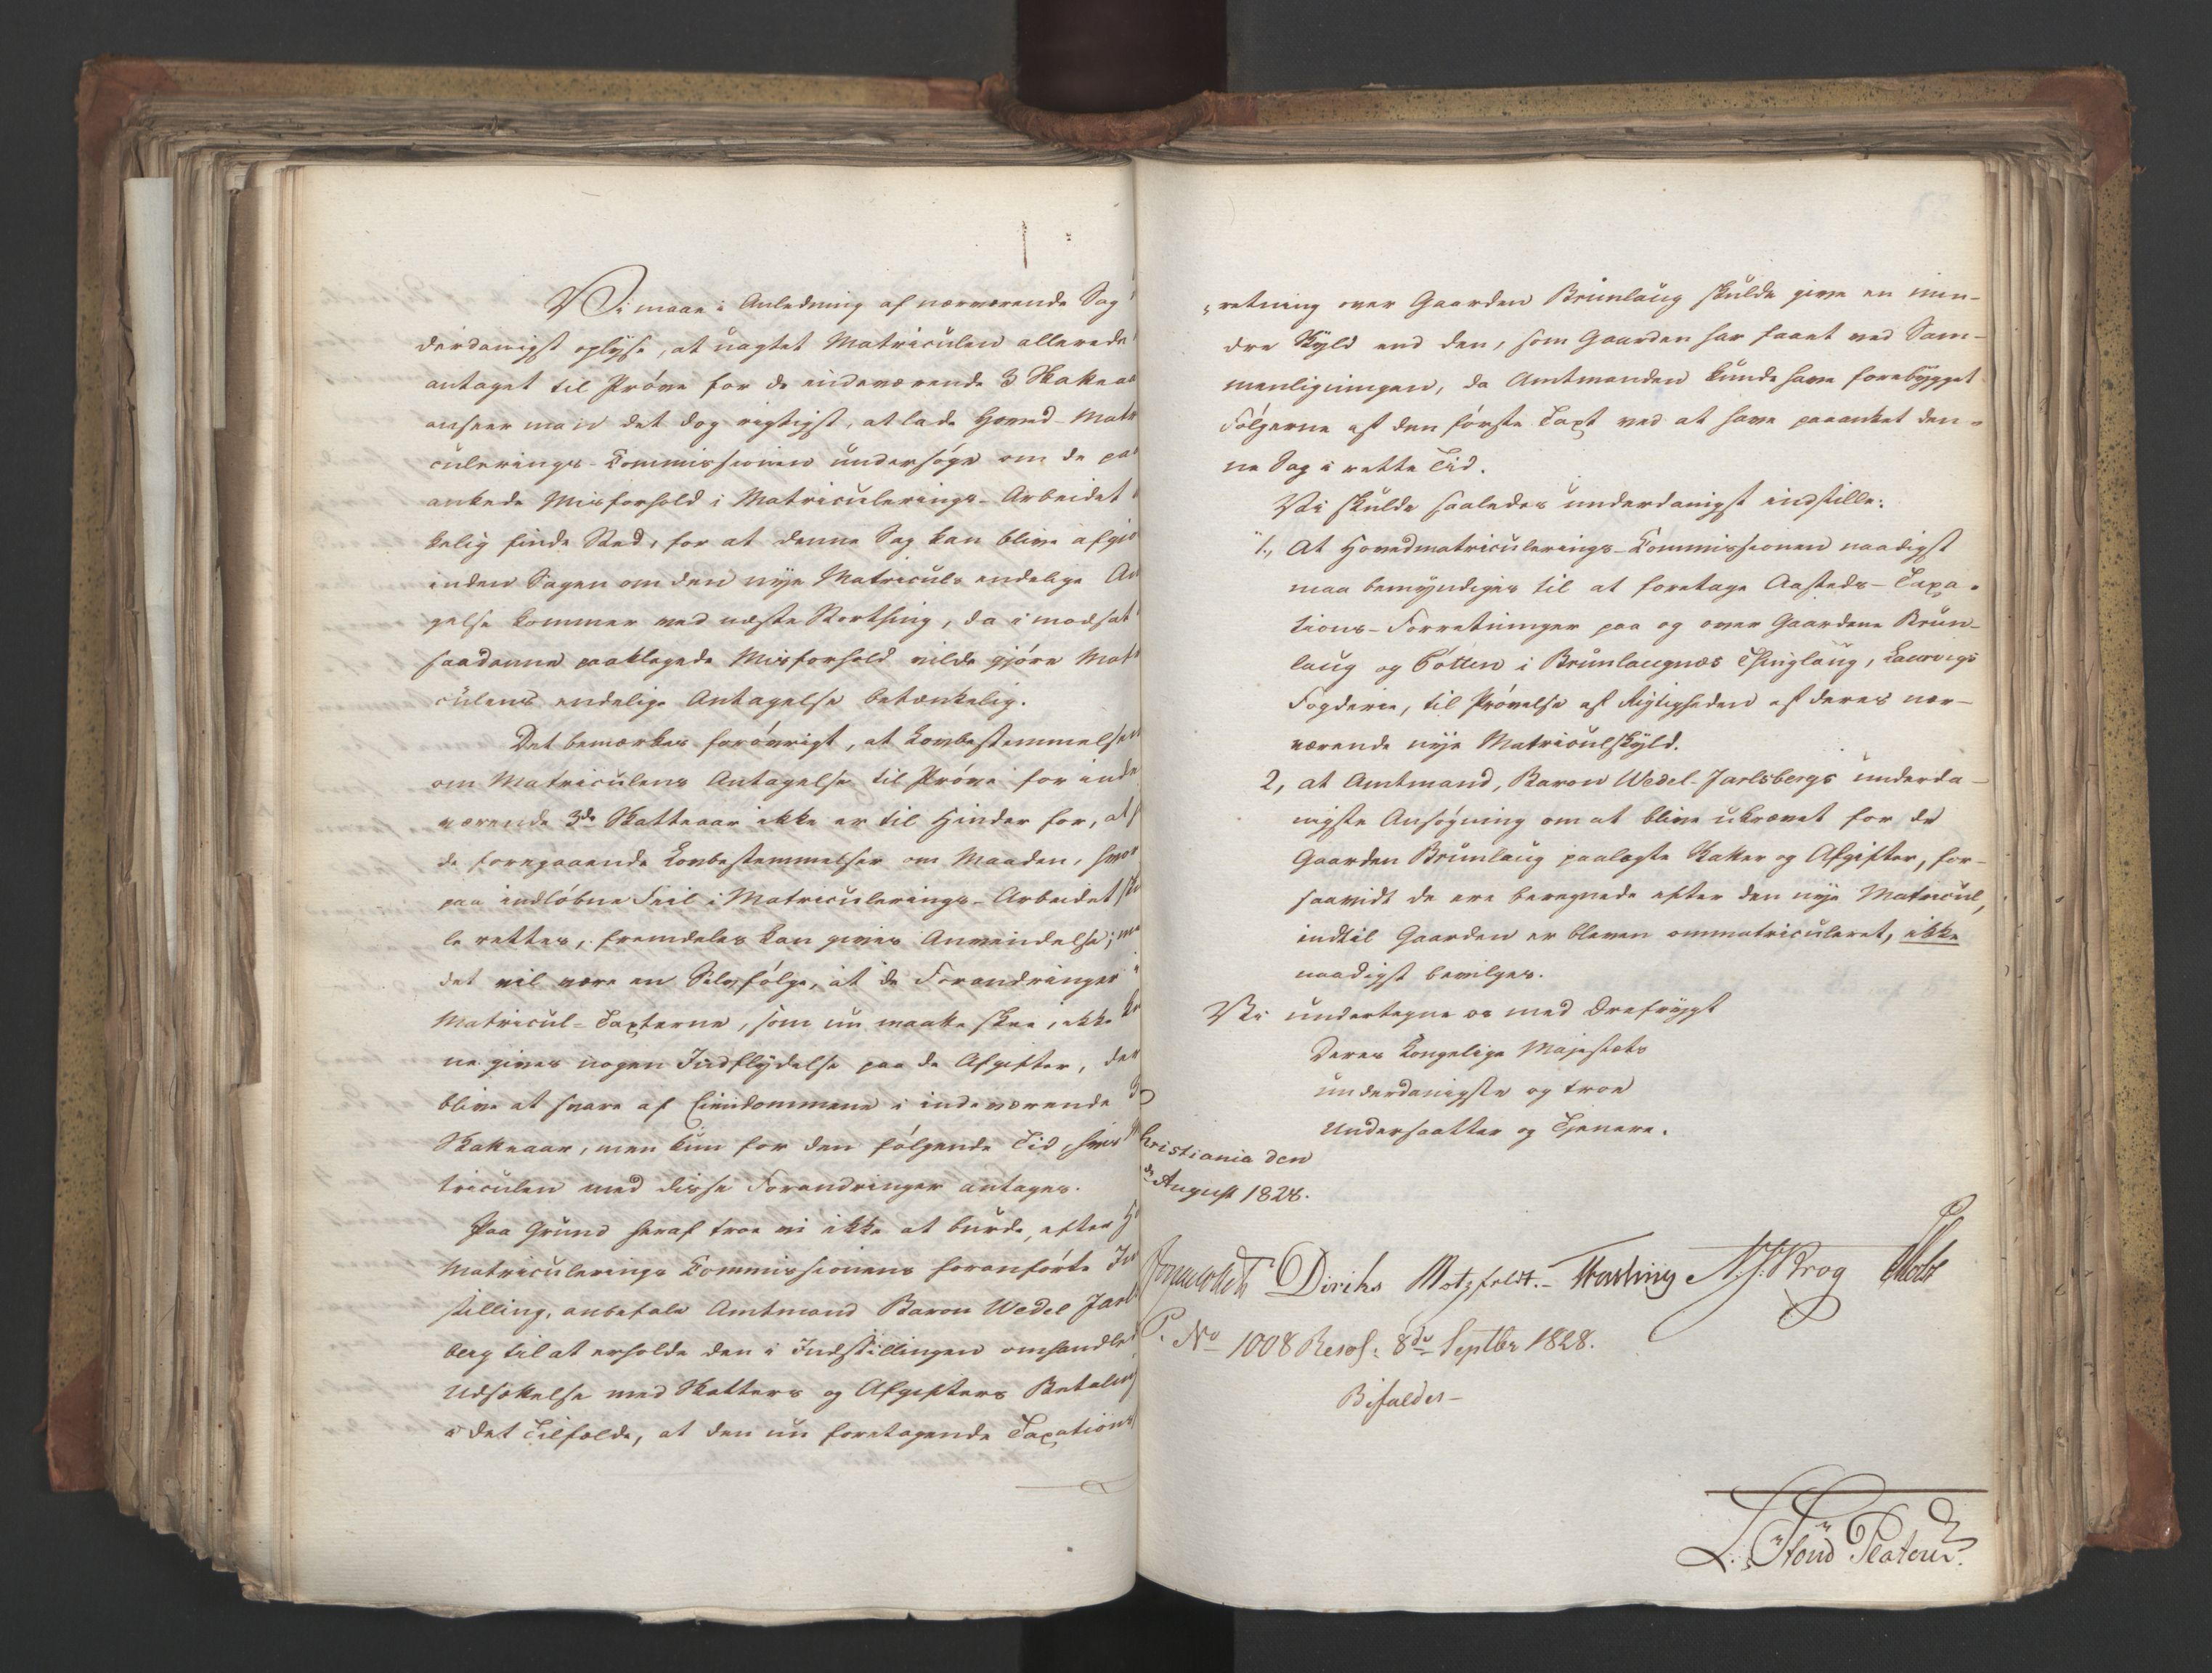 Vi maae i Anledning af nærværende Sag
derdanigst oplyse, at uagtet Matriculen allerede
antaget til Prøve for de indeværende 3 Skatteaar
anseer man det dog rigtigst, at lade Hoved-Matr
culerings-Commissionen undersøge om de paa
ankede Misforhold i Matriculerings-Arbeidet
kelig finde Sted, for at denne Sag kan blive afgjo
inden Sagen om den nye Matriculs endelige An
gelse kommer ved næste Storthing, da i modsat
saadanne paaklagede Misforhold vilde gjøre Matr
culens endelige Antagelse betænkelig.
Det bemærkes forøvrigt, at Lovbestemmelsen
om Matriculens Antagelse til Prøve for inde
værende 3de Skatteaar ikke er til Hinder for, at
de foregaaende Lovbestemmelser om Maaden, hvor
paa indløbne Feil i Matriculerings-Arbeidet sku
le rettes, fremdeles kan gives Anvendelse; me
det vil være en Selvfølge, at de Forandringer i
Matricul-Taxterne, som nu maatte skee, ikke ku
ne gives nogen Indflydelse paa de Afgifter, der
blive at svare af Eiendommene i indeværende 3
Skatteaar, men kun for den følgende Tid, hvis Ma
triculen med disse Forandringer antages.
Paa Grund heraf troe vi ikke at burde, efter Ho
Matriculerings Commissionens foranførte In
stilling, anbefale Amtmand Baron Wedel Jarls
berg til at erholde den i Indstillingen omhandlede
Udsættelse med Skatters og Afgifters Betaling
i det Tilfælde, at den nu foretagende Taxations
retning over Gaarden Brunlaug skulde give en min-
dre Skyld end den, som Gaarden har faaet ved Sam-
menligningen, da Amtmanden kunde have forebygget
Følgerne af den første Taxt ved at have paaanket den-
ne Sag i rette Tid.
Vi skulde saaledes underdanigst indstille:
1., At Hovedmatriculerings-Commissionen naadigst
maa bemyndiges til at foretage Aasteds-Taxa-
tions-Forretninger paa og over Gaardene Brun-
laug og Tøtten i Brunlaugnæs Thinglaug, Laurvigs
Fogderie, til Prøvelse af Rigtigheden af deres nær-
værende nye Matriculskyld.
2, at Amtmand, Baron Wedel-Jarlsbergs underda-
nigste Ansøgning om at blive ukrævet for de
Gaarden Brunlaug paalagte Skatter og Afgifter, for-
saavidt de ere beregnede efter den nye Matricul,
indtil Gaarden er bleven ommatriculeret, ikke
naadigst bevilges.
Vi undertegne os med Ærefrygt
Deres Kongelige Majestæts
underdanigste og troe
Undersaatter og Tjenere.
hristiania den
August 1828.
Diriks Motzfeldt.- N. J. Krog
P. No 1008 Resol: 8de Septbr 1828.
Bifaldes-